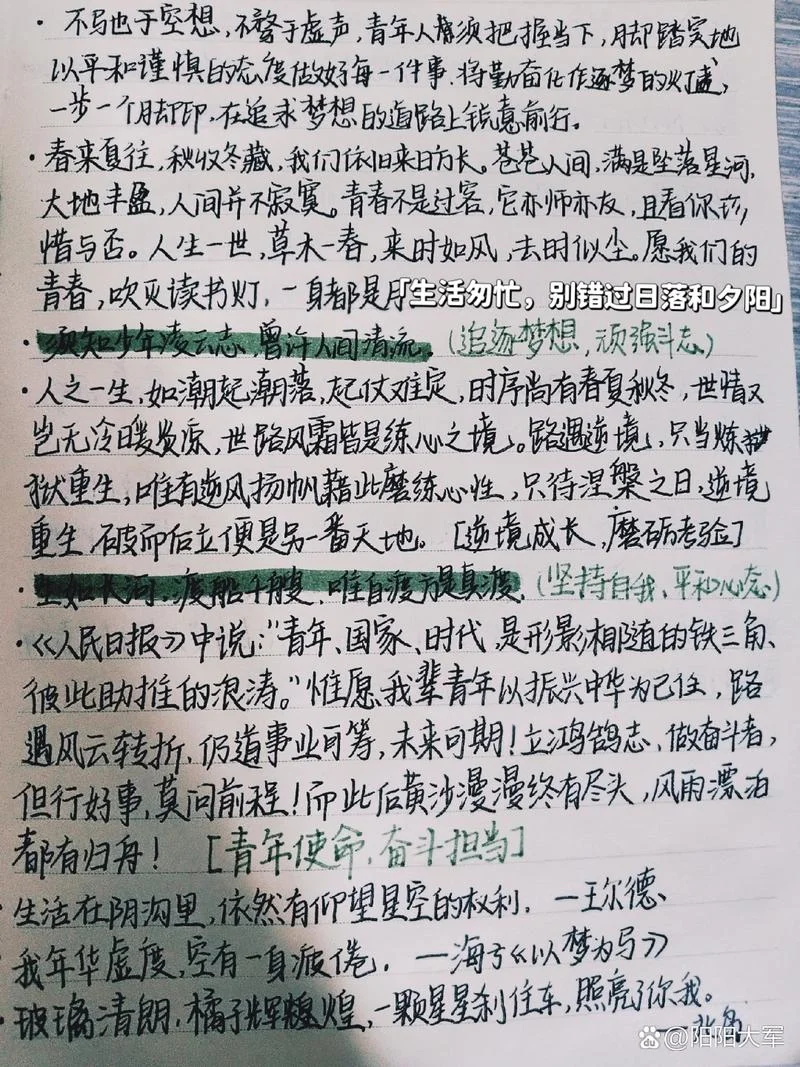 · 不驰于空想，不骛于虚声，青年人必须把握当下，脚踏实地
以平和谨慎的态度做好每一件事，将勤奋化作逐梦的灯盏，
一步一个脚印，在追求梦想的道路上锐意前行。
· 春来夏往，秋收冬藏，我们依旧来日方长。苍苍人间，满是坠落星河，
大地丰盈，人间并不寂寞。青春不是过客，它亦师亦友，且看你珍
惜与否。人生一世，草木一春，来时如风，去时似尘。愿我们的
青春，吹灭读书灯，一身都是月
「生活匆忙，别错过日落和夕阳」
· 须知少年凌云志，曾许人间清流。(追逐梦想，顽强斗志)
· 人之一生，如潮起潮落，起仗难定，时序尚有春夏秋冬，世情又
岂无冷暖炎凉，世路风霜皆是练心之境。路遇逆境，只当炼狱
狱重生，唯有逆风扬帆藉此磨练心性，只待涅槃之日，逆境
重生，破而后立便是另一番天地。[逆境成长，磨砺考验]
· 生如长河，渡船千艘，唯自渡方是真渡，(坚持自我、平和心态)
· 《人民日报》中说："青年、国家、时代，是形影相随的铁三角、
彼此助推的浪涛。"惟愿我辈青年以振兴中华为己任，路
遇风云转折，仍道事业可筹，未来可期！立鸿鹄志，做奋斗者，
但行好事，莫问前程！而此后黄沙漫漫终有尽头，风雨漂泊
都有归舟！ [青年使命，奋斗担当]
· 生活在阴沟里，依然有仰望星空的权利，—王尔德、
我年华虚度，空有一身疲倦，—海子《以梦为马》
· 玻璃清朗，橘子辉煌煌，一颗星星刹住车，照亮了你我。
—北岛
Bai du 阳阳大军